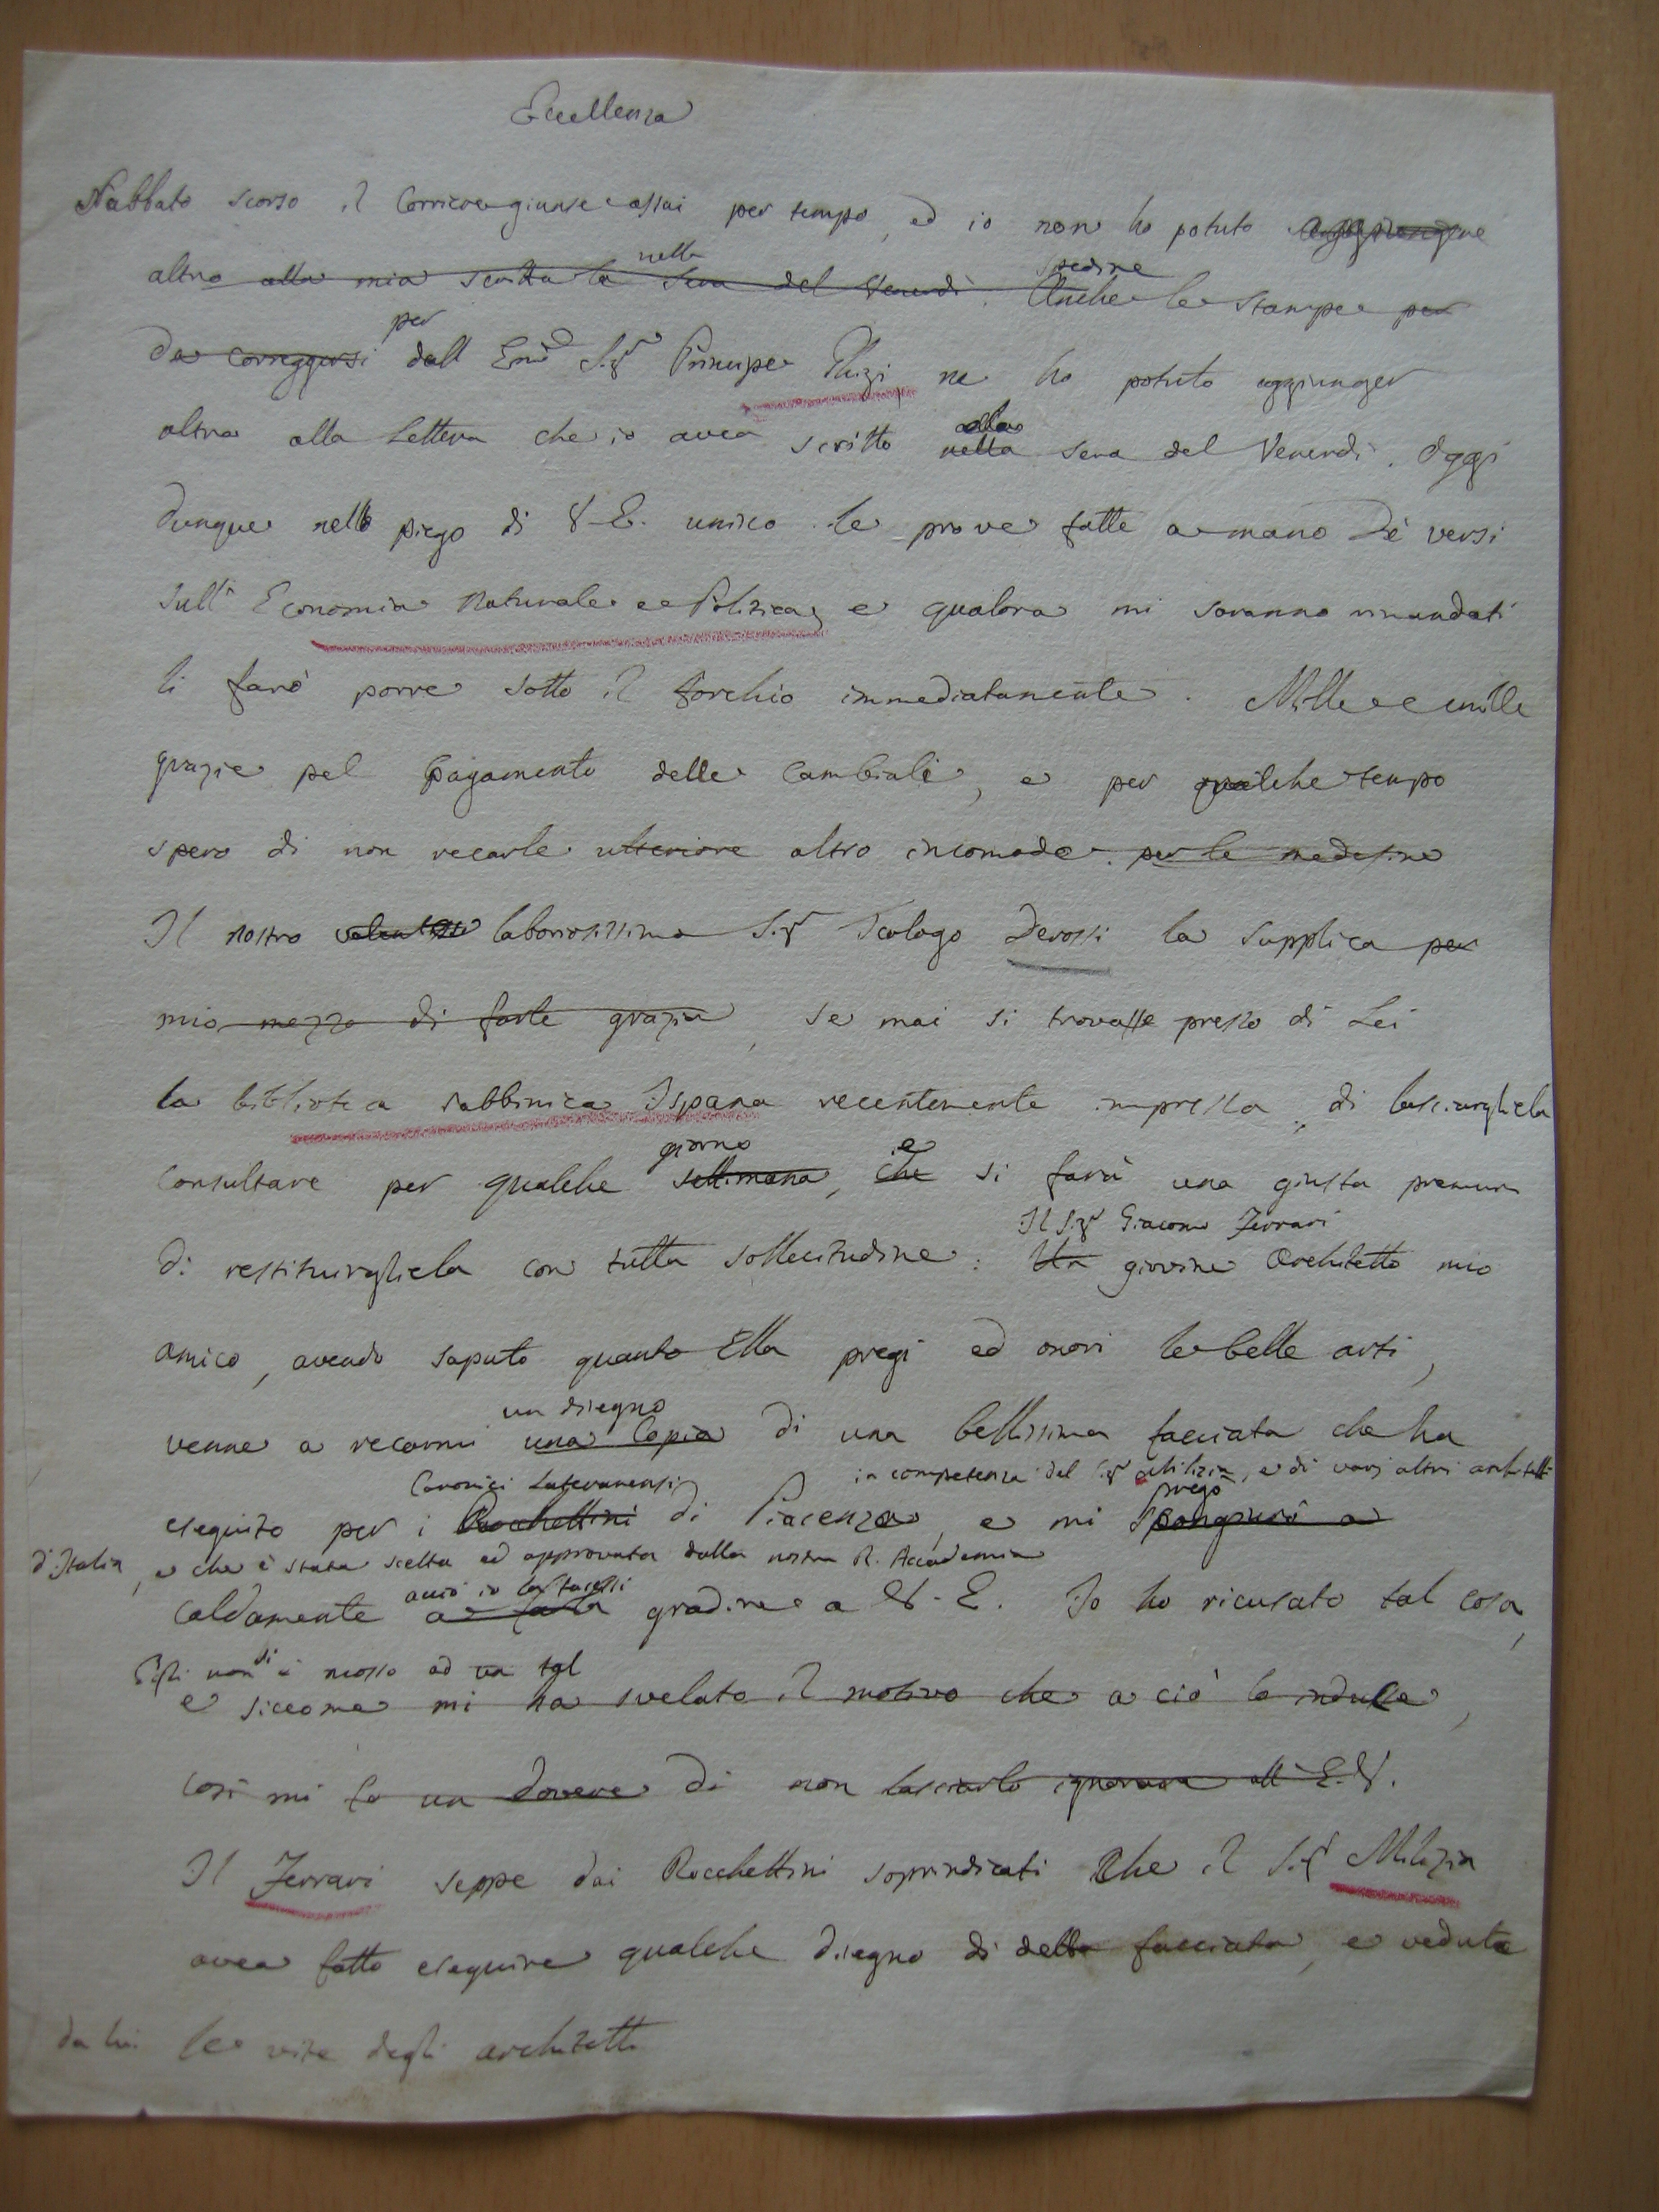 Eccellenza
Sabbato scorso il Corriere giunse assai per tempo, ed io non ho potuto aggiungere
nella spedire
altro alla mia scritta la sera del Venerdì. Anche le stampe per
per
da correggersi dall Emo Sigr Principe Ghigi ne ho potuto aggiunger
alla
altra alla lettera che io avea scritto nella sera del Venerdì. Oggi
dunque nello piego di V. E. unisco le prove fatte a mano de' versi
sull' Economia Naturale e Politica, e qualora mi saranno rimandati
li farò porre sotto il torchio immediatamente. Mille e mille
grazie pel pagamento delle Cambiali, e per qualche tempo
spero di non recarle ulteriore altro incomodo. per le medesime
Il nostro laboriosissimo Sigr Teologo Derossi la supplica per
mio mezzo di farle grazia, se mai si trovasse presso di Lei
la biblioteca rabbinica Ispana recentemente impressa, di lasciargliela
giorno e
consultare per qualche settimana, che si farà una giusta premura
Il Sigr Giacomo Ferrari
di restituirgliela con tutta sollecitudine. Un giovine Architetto mio
amico, avendo saputo quanto Ella pregi ed onori le belle arti,
un disegno
venne a recarmi una Copia di una bellissima facciata che ha
Canonici Lateranensi in competenza del Sigr Milizia, e di varj altri architetti
prego
eseguito per i Rocchettini di Piacenza, e mi scongiurò a
d'Italia, e che è stata scelta ed approvata dalla nostra R. Accademia
acciò io la facessi
caldamente a farla gradire a V. E. Io ho ricusato tal cosa,
Egli non si è mosso ad un tal
e siccome mi ha svelato il motivo che a ciò lo indusse,
così mi fo un dovere di non lasciarlo ignorare all' E. V.
Il Ferrari seppe dai Rocchettini sopraindicati che il Sigr Milizia
avea fatto eseguire qualche disegno di detta facciata, e veduta
da lui le vite degli architetti